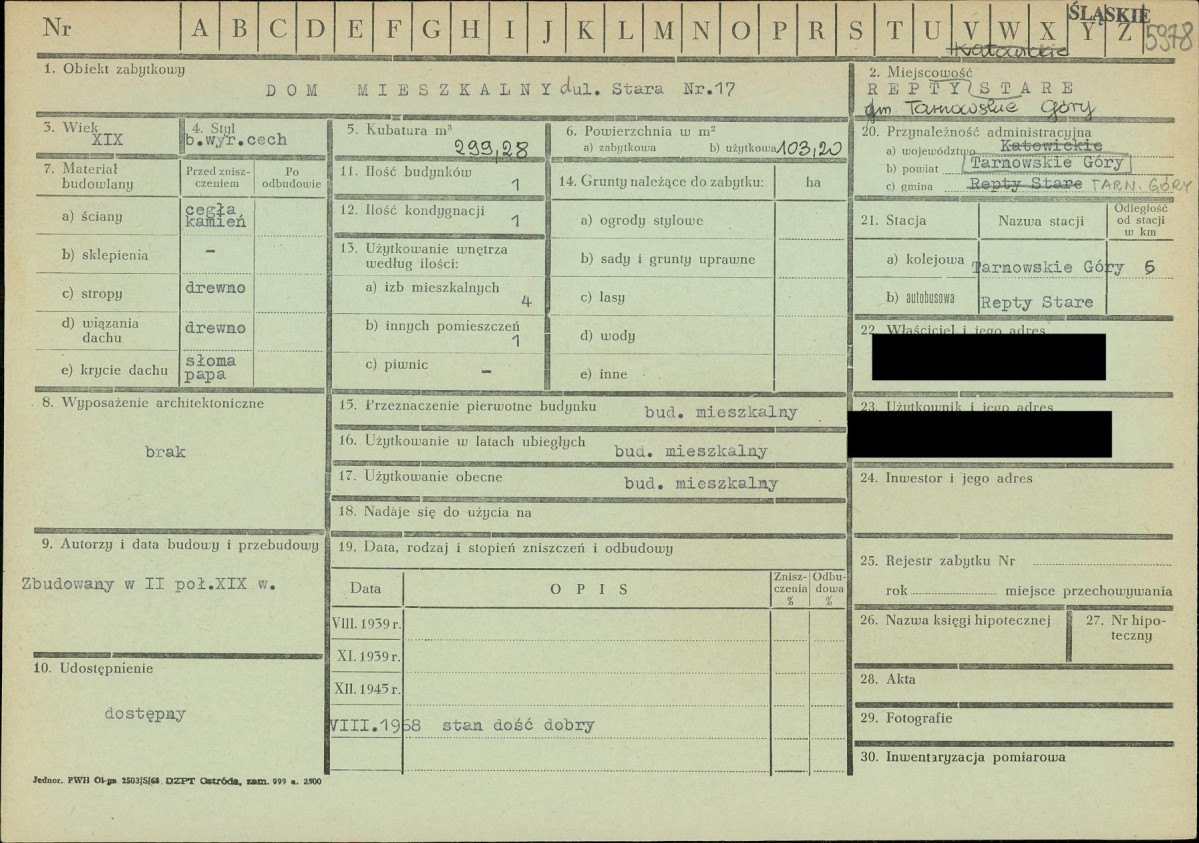 Nr A B C D E F G H I J K L M N O P R S T U V W X Y Z
ŚLĄSKIE
5978
Katowickie
1. Obiekt zabytkowy
DOM MIESZKALNY d ul. Stara Nr.17
2. Miejscowość
REPTY STARE
gm. Tarnowskie Góry
3. Wiek
XIX
4. Styl
b.wyr.cech
5. Kubatura m³
299,28
6. Powierzchnia w m²
a) zabytkowa b) użytkowa 103,20
7. Materiał budowlany
Przed zniszczeniem
Po odbudowie
a) ściany cegła kamień
b) sklepienia -
c) stropy drewno
d) wiązania dachu drewno
e) krycie dachu słoma papa
8. Wyposażenie architektoniczne
brak
9. Autorzy i data budowy i przebudowy
Zbudowany w II poł.XIX w.
10. Udostępnienie
dostępny
11. Ilość budynków
1
12. Ilość kondygnacji
1
13. Użytkowanie wnętrza
według ilości:
a) izb mieszkalnych
4
b) innych pomieszczeń
1
c) piwnic -
14. Grunty należące do zabytku: ha
a) ogrody stylowe
b) sady i grunty uprawne
c) lasy
d) wody
e) inne
15. Przeznaczenie pierwotne budynku bud. mieszkalny
16. Użytkowanie w latach ubiegłych bud. mieszkalny
17. Użytkowanie obecne bud. mieszkalny
18. Nadaje się do użycia na
19. Data, rodzaj i stopień zniszczeń i odbudowy
Data OPIS Zniszczenia % Odbudowa %
VIII. 1939 r.
XI. 1939 r.
XII. 1945 r.
VIII.1968 stan dość dobry
20. Przynależność administracyjna
a) województwo Katowickie
b) powiat Tarnowskie Góry
c) gmina Repty Stare TARN. GÓRY
21. Stacja Nazwa stacji Odległość od stacji w km
a) kolejowa Tarnowskie Góry 5
b) autobusowa Repty Stare
22. Właściciel i jego adres
23. Użytkownik i jego adres
24. Inwestor i jego adres
25. Rejestr zabytku Nr
rok miejsce przechowywania
26. Nazwa księgi hipotecznej
27. Nr hipo-
teczny
28. Akta
29. Fotografie
30. Inwentaryzacja pomiarowa
Jednor. PWH Ol-ga 2503/S/68 DZPT Ostróda, zam. 999 n. 2500